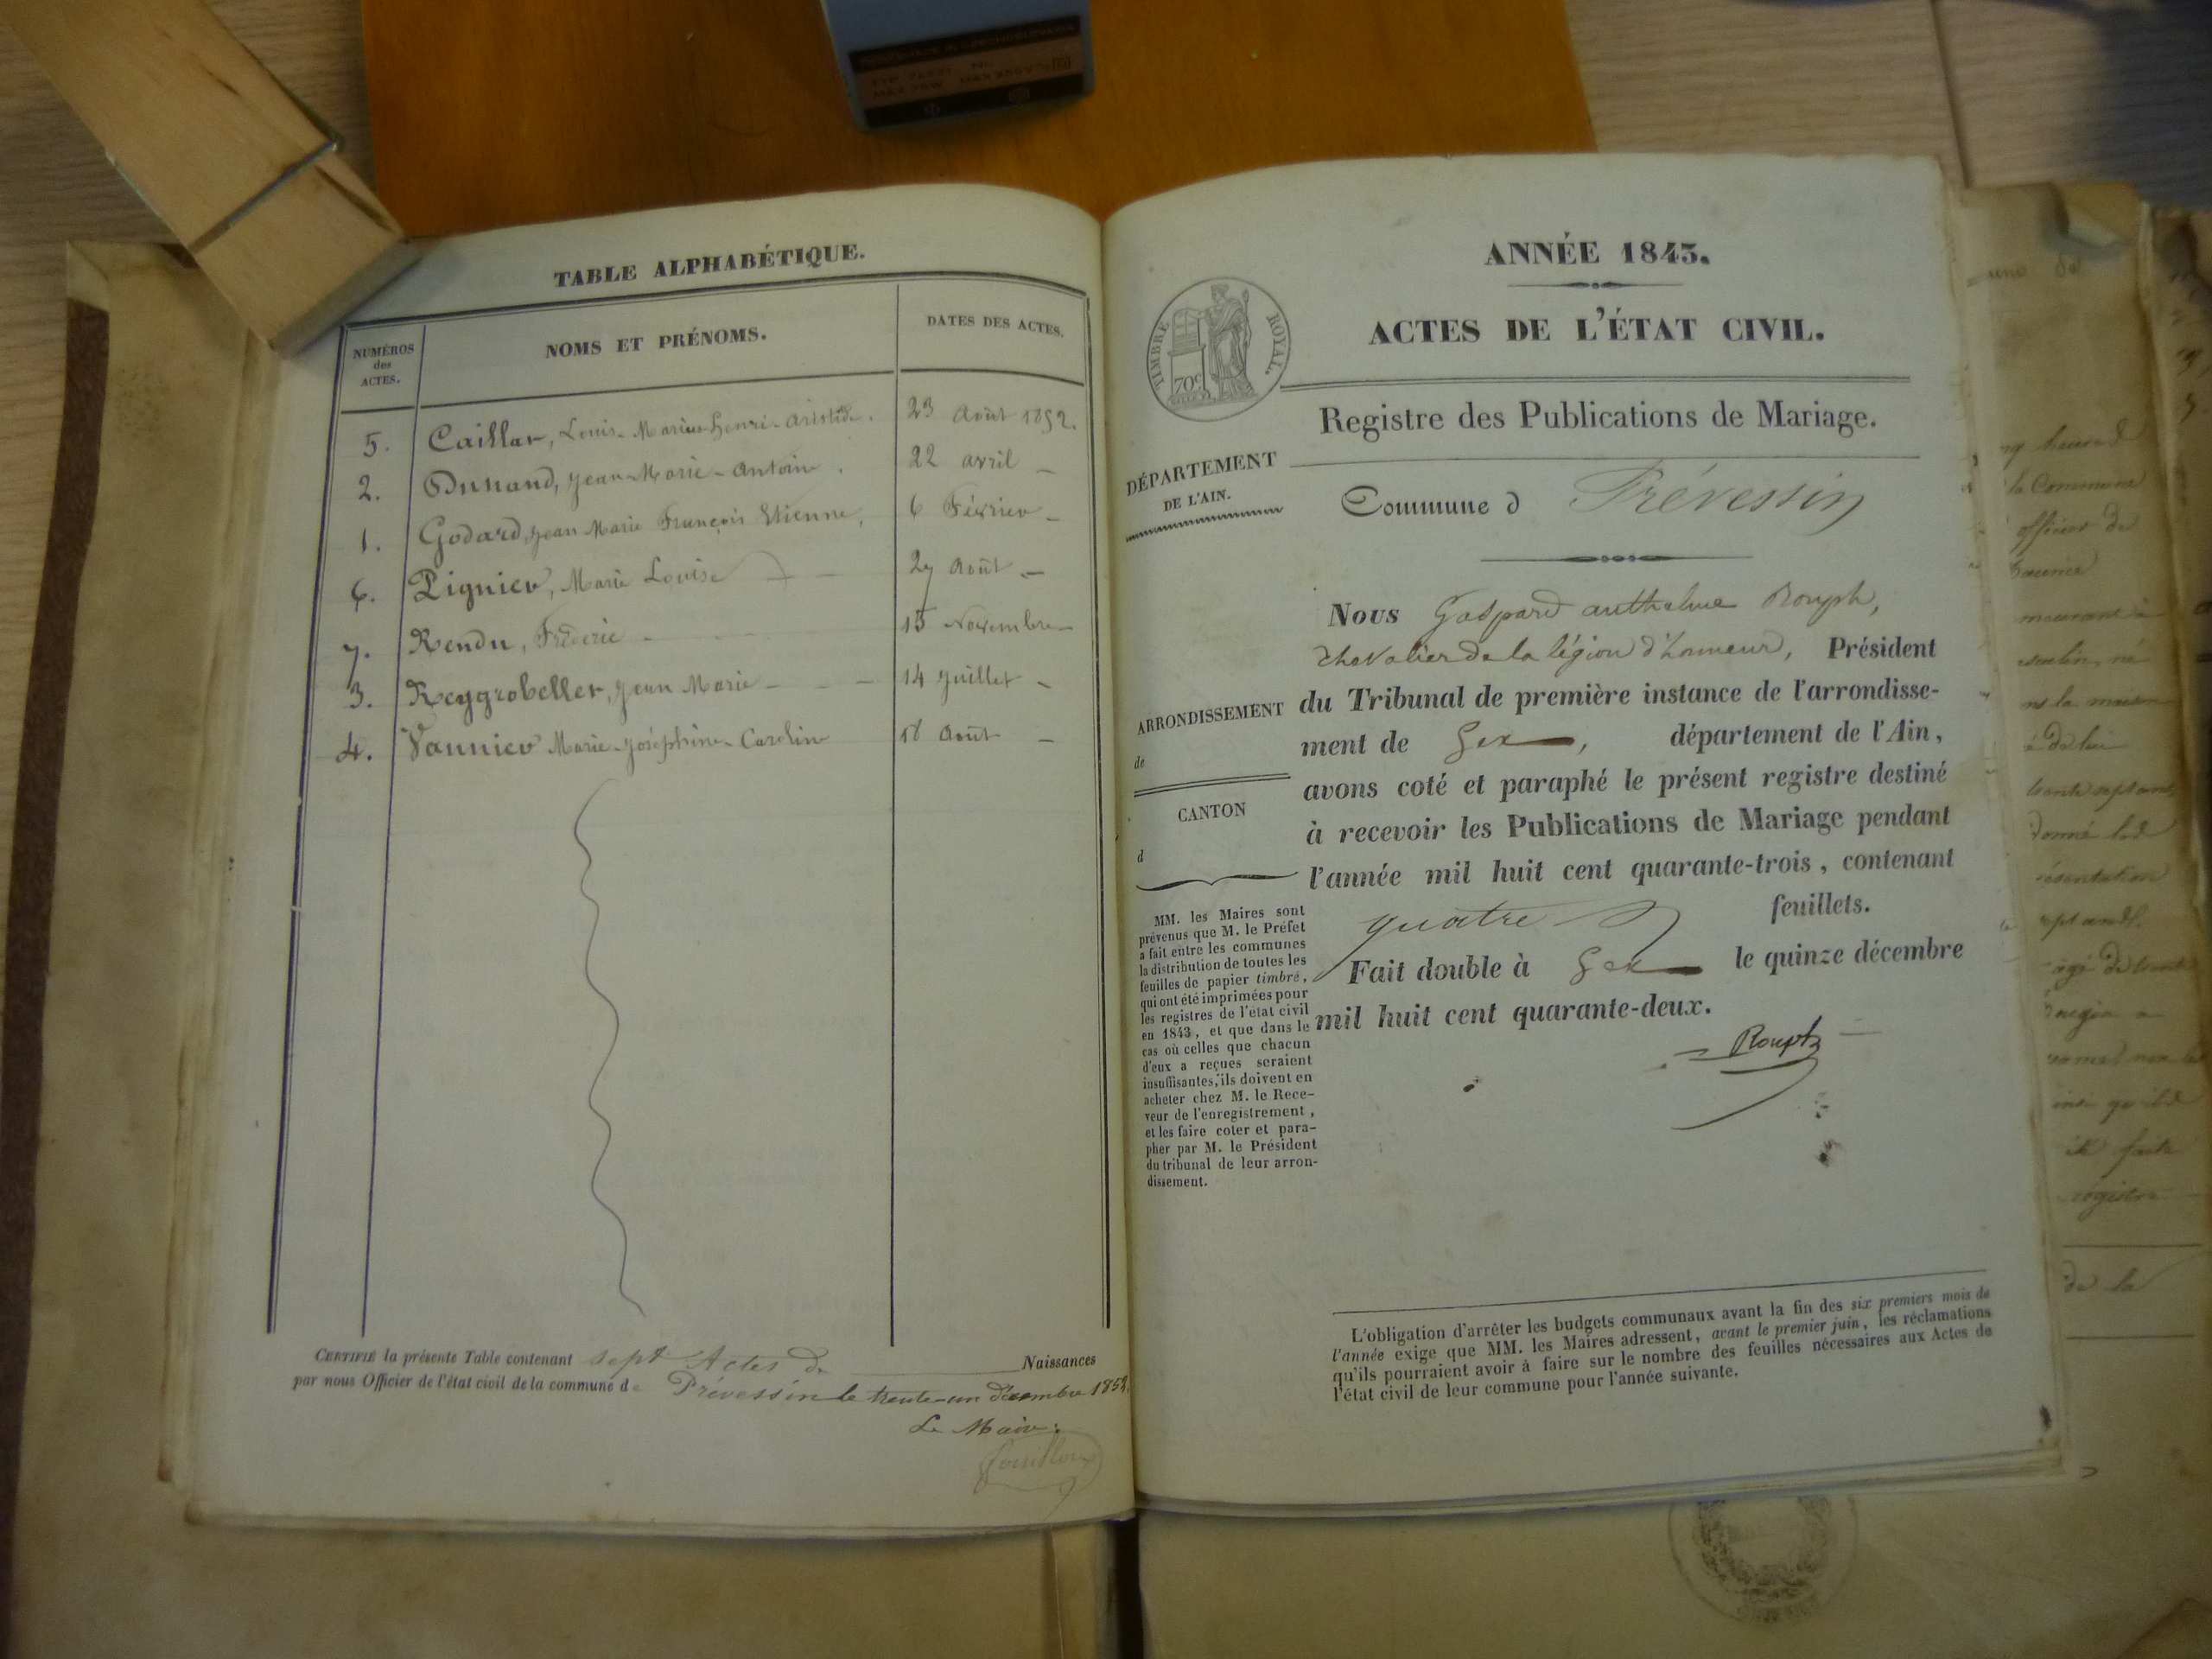 TABLE ALPHABÉTIQUE.
NUMÉROS des ACTES.
NOMS ET PRÉNOMS.
DATES DES ACTES.
5. Caillar, Louis-Marius-Henri-Aristide. 23 Août 1852.
2. Dunand, Jean-Marie-Antoine. 22 avril —
1. Godard, Jean Marie François Etienne, 6 Février —
6. Pignier, Marie Louise — 27 Août —
7. Rendu, Fréderic — 15 Novembre —
3. Reygrobellet, Jean Marie — — — 14 Juillet —
4. Vannier Marie-Joséphine-Caroline 18 Août —
CERTIFIÉ la présente Table contenant sept Actes de Naissances
par nous Officier de l'état civil de la commune de Prévessin le trente-un décembre 1852.
Le Maire:
ANNÉE 1843.
TIMBRE ROYAL.
70c
ACTES DE L'ÉTAT CIVIL.
Registre des Publications de Mariage.
DÉPARTEMENT
DE L'AIN.
Commune d Prévessin
Nous Gaspard anthelme Rouph,
chevalier de la légion d'honneur, Président
du Tribunal de première instance de l'arrondisse-
ment de Gex, département de l'Ain,
avons coté et paraphé le présent registre destiné
à recevoir les Publications de Mariage pendant
l'année mil huit cent quarante-trois, contenant
quatre feuillets.
Fait double à Gex le quinze décembre
mil huit cent quarante-deux.
Rouph
ARRONDISSEMENT
de
CANTON
d
MM. les Maires sont
prévenus que M. le Préfet
a fait entre les communes
la distribution de toutes les
feuilles de papier timbré,
qui ont été imprimées pour
les registres de l'état civil
en 1843, et que dans le
cas où celles que chacun
d'eux a reçues seraient
insuffisantes, ils doivent en
acheter chez M. le Rece-
veur de l'enregistrement,
et les faire coter et para-
pher par M. le Président
du tribunal de leur arron-
dissement.
L'obligation d'arrêter les budgets communaux avant la fin des six premiers mois de
l'année exige que MM. les Maires adressent, avant le premier juin, les réclamations
qu'ils pourraient avoir à faire sur le nombre des feuilles nécessaires aux Actes de
l'état civil de leur commune pour l'année suivante.
la Commune
officier de
ns la maison
trente sept ans
donné lad
registre
de la